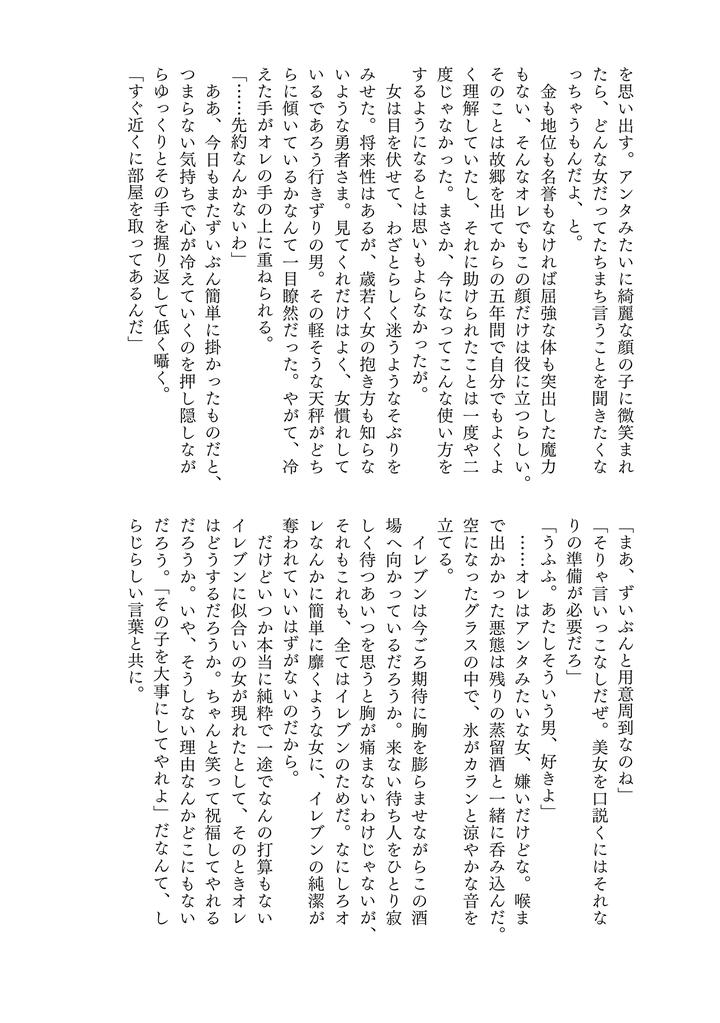 を思い出す。アンタみたいに綺麗な顔の子に微笑まれ
たら、どんな女だってたちまち言うことを聞きたくな
っちゃうもんだよ、と。
　金も地位も名誉もなければ屈強な体も突出した魔力
もない、そんなオレでもこの顔だけは役に立つらしい。
そのことは故郷を出てからの五年間で自分でもよくよ
く理解していたし、それに助けられたことは一度や二
度じゃなかった。まさか、今になってこんな使い方を
するようになるとは思いもよらなかったが。
　女は目を伏せて、わざとらしく迷うようなそぶりを
みせた。将来性はあるが、歳若く女の抱き方も知らな
いような勇者さま。見てくれだけはよく、女慣れして
いるであろう行きずりの男。その軽そうな天秤がどち
らに傾いているかなんて一目瞭然だった。やがて、冷
えた手がオレの手の上に重ねられる。
「……先約なんかないわ」
　ああ、今日もまたずいぶん簡単に掛かったものだと、
つまらない気持ちで心が冷えていくのを押し隠しなが
らゆっくりとその手を握り返して低く囁く。
「すぐ近くに部屋を取ってあるんだ」
「まあ、ずいぶんと用意周到なのね」
「そりゃ言いっこなしだぜ。美女を口説くにはそれな
りの準備が必要だろ」
「うふふ。あたしそういう男、好きよ」
　……オレはアンタみたいな女、嫌いだけどな。喉ま
で出かかった悪態は残りの蒸留酒と一緒に呑み込んだ。
空になったグラスの中で、氷がカランと涼やかな音を
立てる。
　イレブンは今ごろ期待に胸を膨らませながらこの酒
場へ向かっているだろうか。来ない待ち人をひとり寂
しく待つあいつを思うと胸が痛まないわけじゃないが、
それもこれも、全てはイレブンのためだ。なにしろオ
レなんかに簡単に靡くような女に、イレブンの純潔が
奪われていいはずがないのだから。
　だけどいつか本当に純粋で一途でなんの打算もない
イレブンに似合いの女が現れたとして、そのときオレ
はどうするだろうか。ちゃんと笑って祝福してやれる
だろうか。いや、そうしない理由なんかどこにもない
だろう。「その子を大事にしてやれよ」だなんて、し
らじらしい言葉と共に。